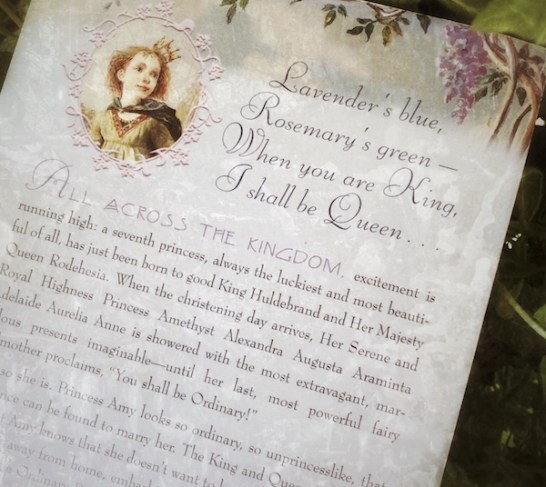 Lavender's blue,
Rosemary's green —
When you are King,
I shall be Queen . . .
ALL ACROSS THE KINGDOM, excitement is
running high: a seventh princess, always the luckiest and most beauti-
ful of all, has just been born to good King Huldebrand and Her Majesty
Queen Rodehesia. When the christening day arrives, Her Serene and
Royal Highness Princess Amethyst Alexandra Augusta Araminta
delaide Aurelia Anne is showered with the most extravagant, mar-
lous presents imaginable—until her last, most powerful fairy
mother proclaims, "You shall be Ordinary!"
so she is. Princess Amy looks so ordinary, so unprincesslike, that
nce can be found to marry her. The King and Que
Amy knows that she doesn't want to
away from home,